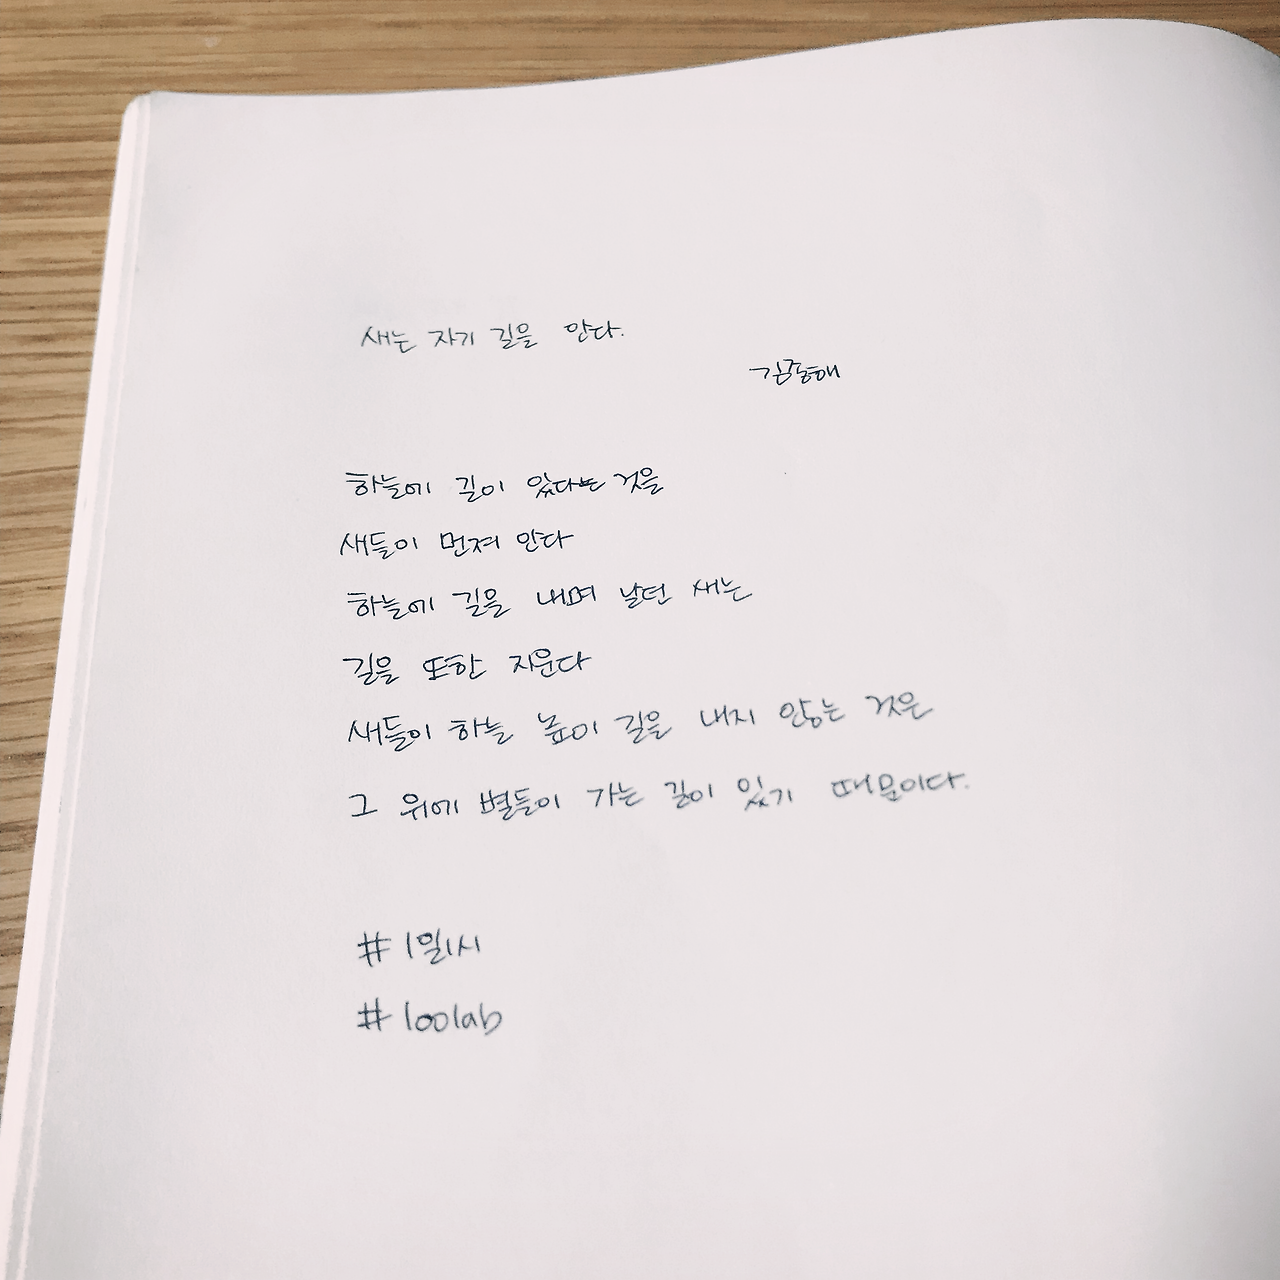 새는 자기 길을 안다.
김종해
하늘에 길이 있다는 것을
새들이 먼저 안다
하늘에 길을 내며 날던 새는
길을 또한 지운다
새들이 하늘 높이 길을 내지 않는 것은
그 위에 별들이 가는 길이 있기 때문이다.
#1일1시
#100lab